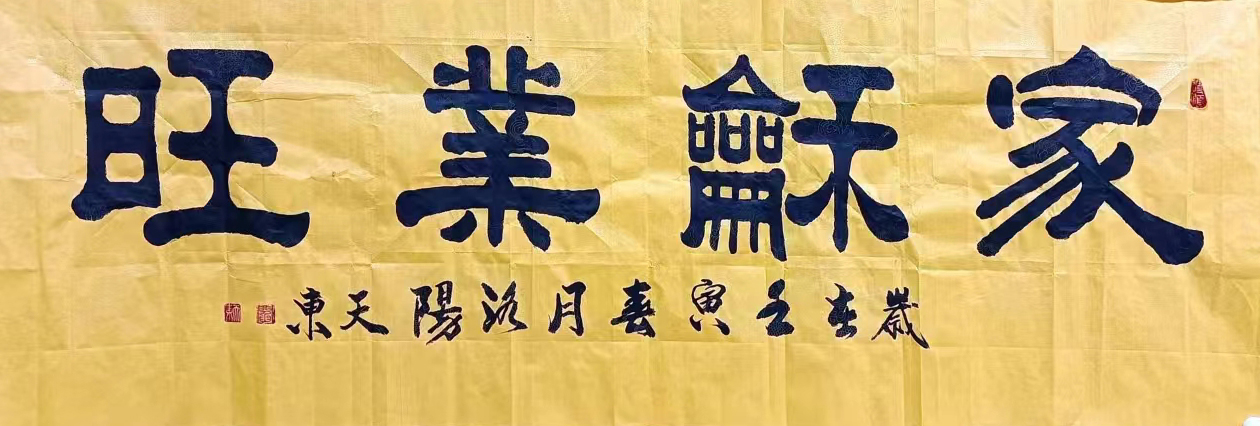 家龢業旺
歲在壬寅春月洛陽天東